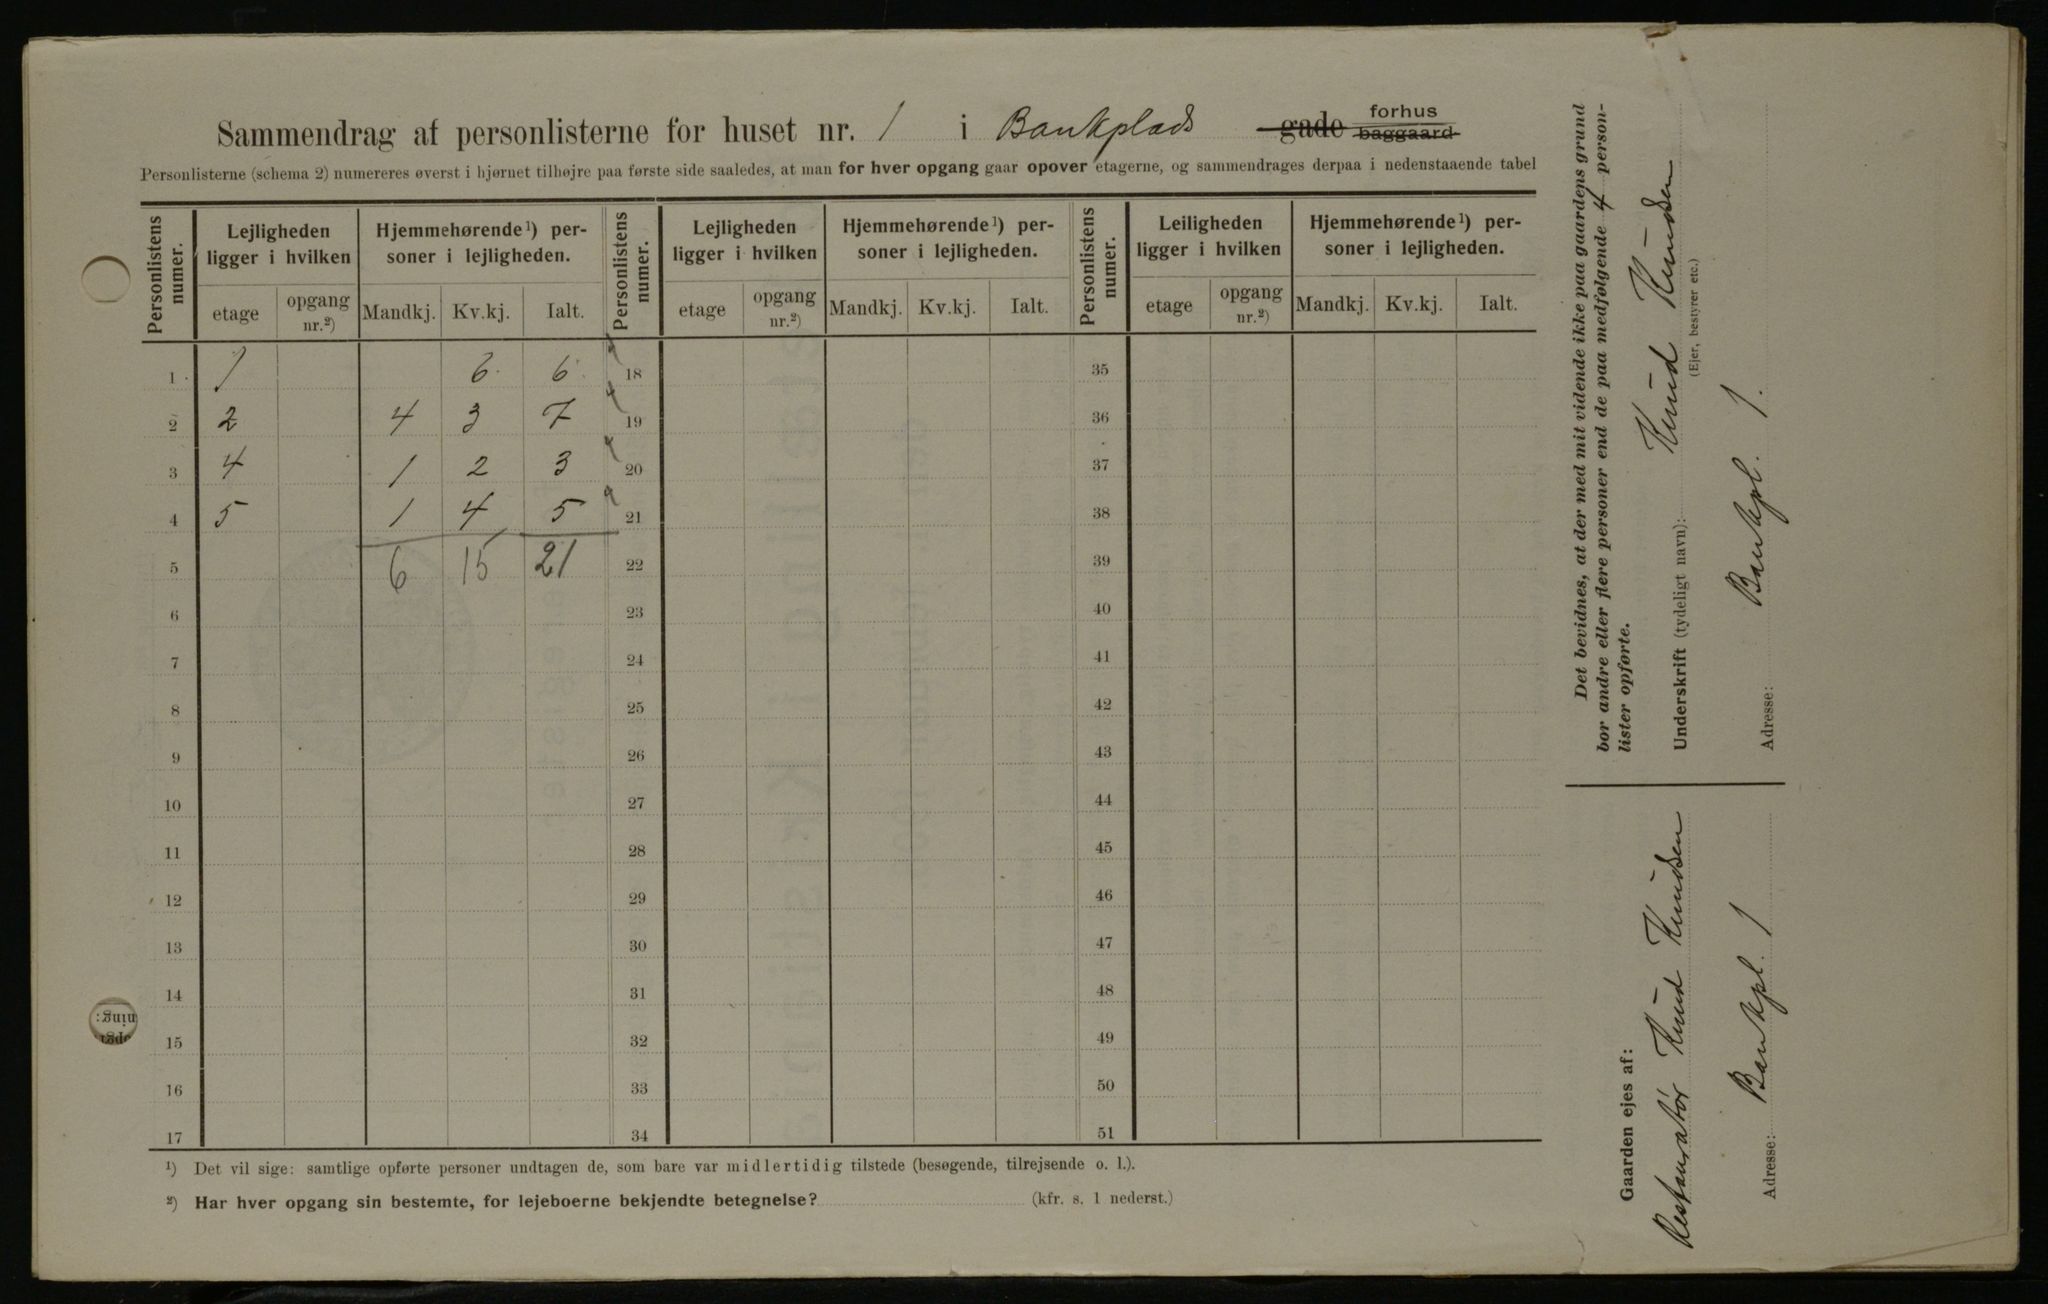 Sammendrag af personlisterne for huset nr. 1 i Bankplads gade forhus baggaard
Personlisterne (schema 2) numereres øverst i hjørnet tilhøjre paa første side saaledes, at man for hver opgang gaar opover etagerne, og sammendrages derpaa i nedenstaaende tabel
Personlistens numer. Lejligheden ligger i hvilken Hjemmehørende¹) personer i lejligheden. Personlistens numer. Lejligheden ligger i hvilken Hjemmehørende¹) personer i lejligheden. Personlistens numer. Leiligheden ligger i hvilken Hjemmehørende¹) personer i lejligheden.
etage opgang nr.²) Mandkj. Kv.kj. Ialt. etage opgang nr.²) Mandkj. Kv.kj. Ialt. etage opgang nr.²) Mandkj. Kv.kj. Ialt.
1 1 6 6 18 35
2 2 4 3 7 19 36
3 4 1 2 3 20 37
4 5 1 4 5 21 38
5 6 15 21 22 39
6 23 40
7 24 41
8 25 42
9 26 43
10 27 44
11 28 45
12 29 46
13 30 47
14 31 48
15 32 49
16 33 50
17 34 51
¹) Det vil sige: samtlige opførte personer undtagen de, som bare var midlertidig tilstede (besøgende, tilrejsende o. l.).
²) Har hver opgang sin bestemte, for lejeboerne bekjendte betegnelse? (kfr. s. 1 nederst.)
Det bevidnes, at der med mit vidende ikke paa gaardens grund
bor andre eller flere personer end de paa medfølgende 4 person-
lister opførte.
Underskrift (tydeligt navn): Knud Knudsen
(Ejer, bestyrer etc.)
Adresse: Bankpl. 1.
Gaarden ejes af:
Restauratør Knud Knudsen
Adresse: Bankpl. 1
ning: